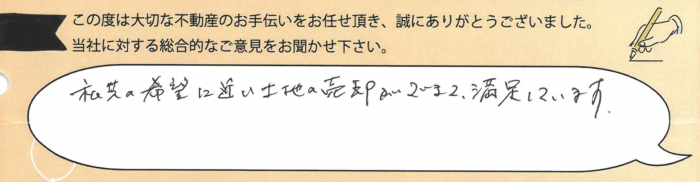 この度は大切な不動産のお手伝いをお任せ頂き、誠にありがとうございました。
当社に対する総合的なご意見をお聞かせ下さい。
私共の希望に近い土地の売却ができて、満足しています。